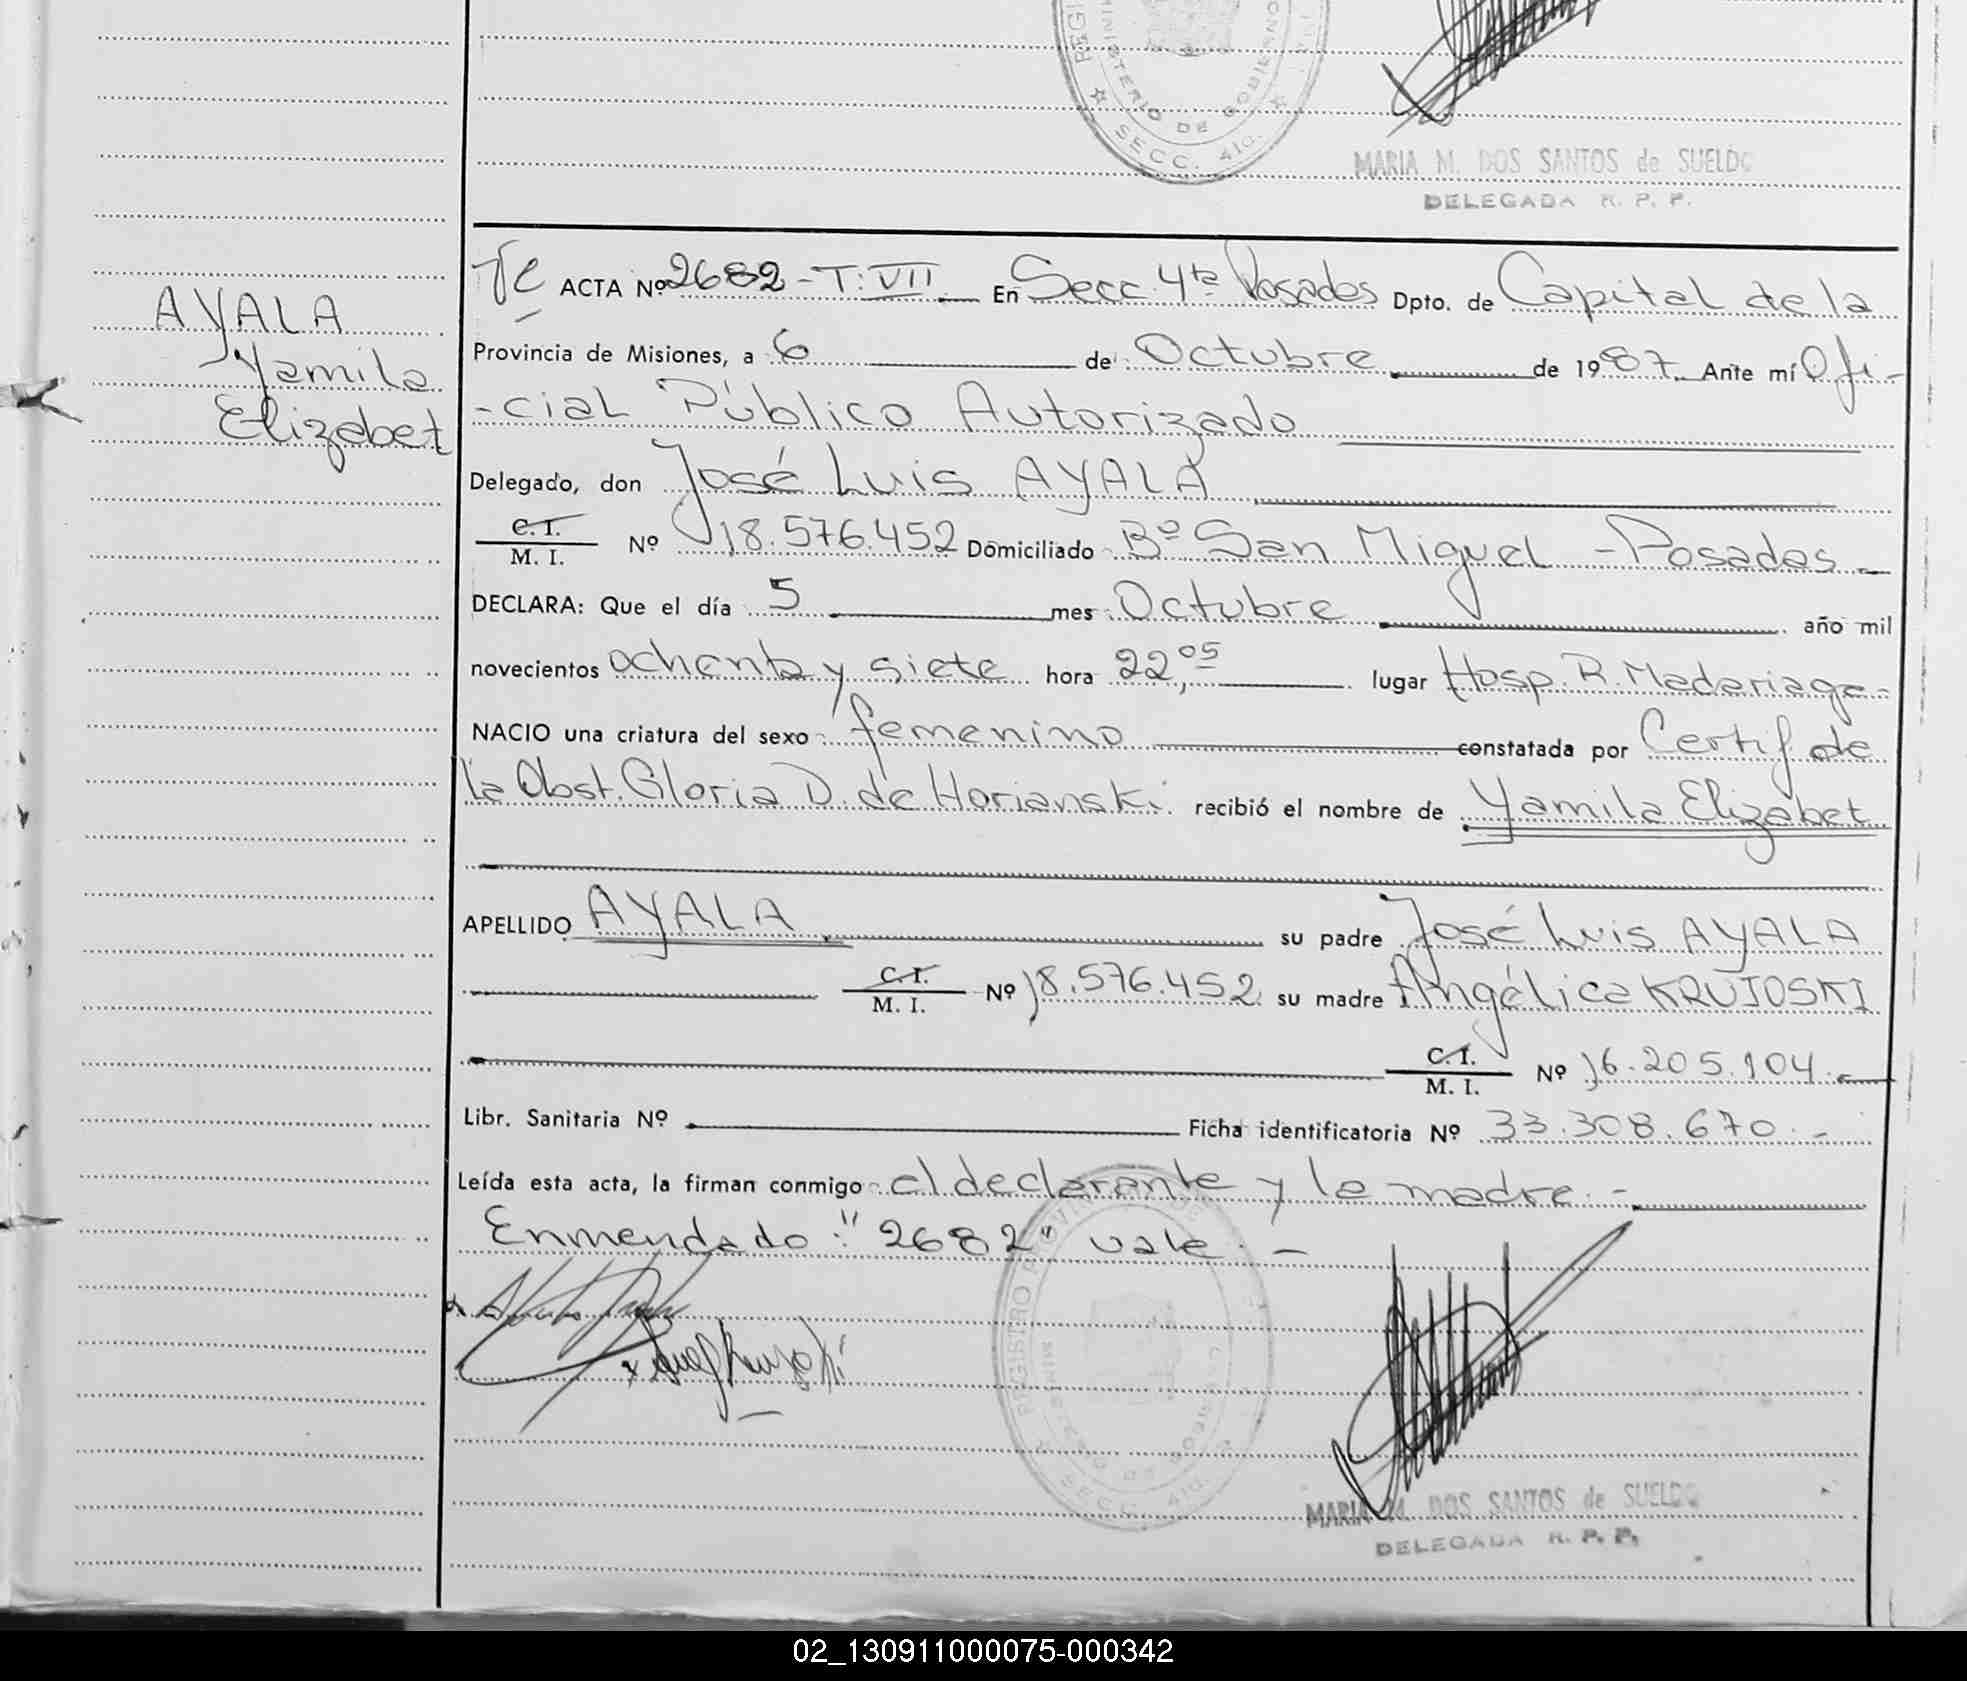 REGI
MINISTERIO DE GOBIERNO
SECC. 4ta.
MARIA M. DOS SANTOS de SUELDO
DELEGADA R. P. P.
ACTA Nº 2682 - T: VII En Secc 4ta Posadas Dpto. de Capital de la
AYALA
Yamila
Elizabet
Provincia de Misiones, a 6 de Octubre de 1987. Ante mí Ofi-
-cial Público Autorizado
Delegado, don José Luis AYALA
C.I.
M. I. Nº 18.576.452 Domiciliado Bº San Miguel - Posadas -
DECLARA: Que el día 5 mes Octubre año mil
novecientos ochenta y siete hora 22,05 lugar Hosp. R. Madariaga -
NACIO una criatura del sexo femenino constatada por Certif de
la Obst. Gloria D. de Horianski recibió el nombre de Yamila Elizabet
APELLIDO AYALA su padre José Luis AYALA
C.I.
M. I. Nº 18.576.452 su madre Angélica KRUJOSKI
C.I.
M. I. Nº 16.205.104.-
Libr. Sanitaria Nº Ficha identificatoria Nº 33.308.670.-
Leída esta acta, la firman conmigo el declarante y la madre.-
Enmendado: "2682" vale.-
REGISTRO PROVINCIAL DE
SECC. 4ta.
MARIA M. DOS SANTOS de SUELDO
DELEGADA R. P. P.
02_130911000075-000342